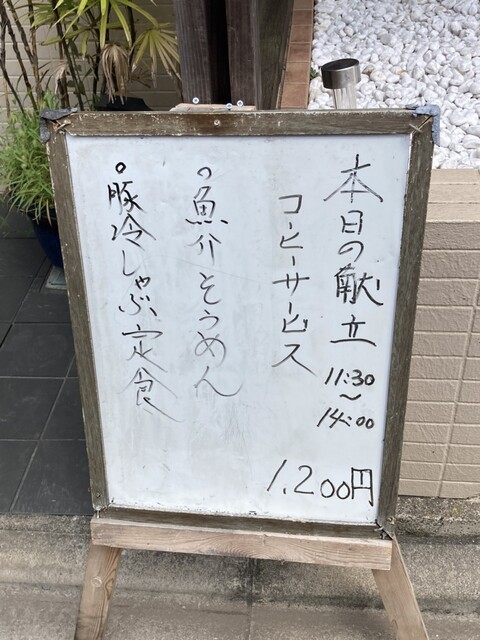 本日の献立
11:30
〜
14:00
コーヒーサービス
1,200円
。魚介そうめん
。豚冷しゃぶ定食